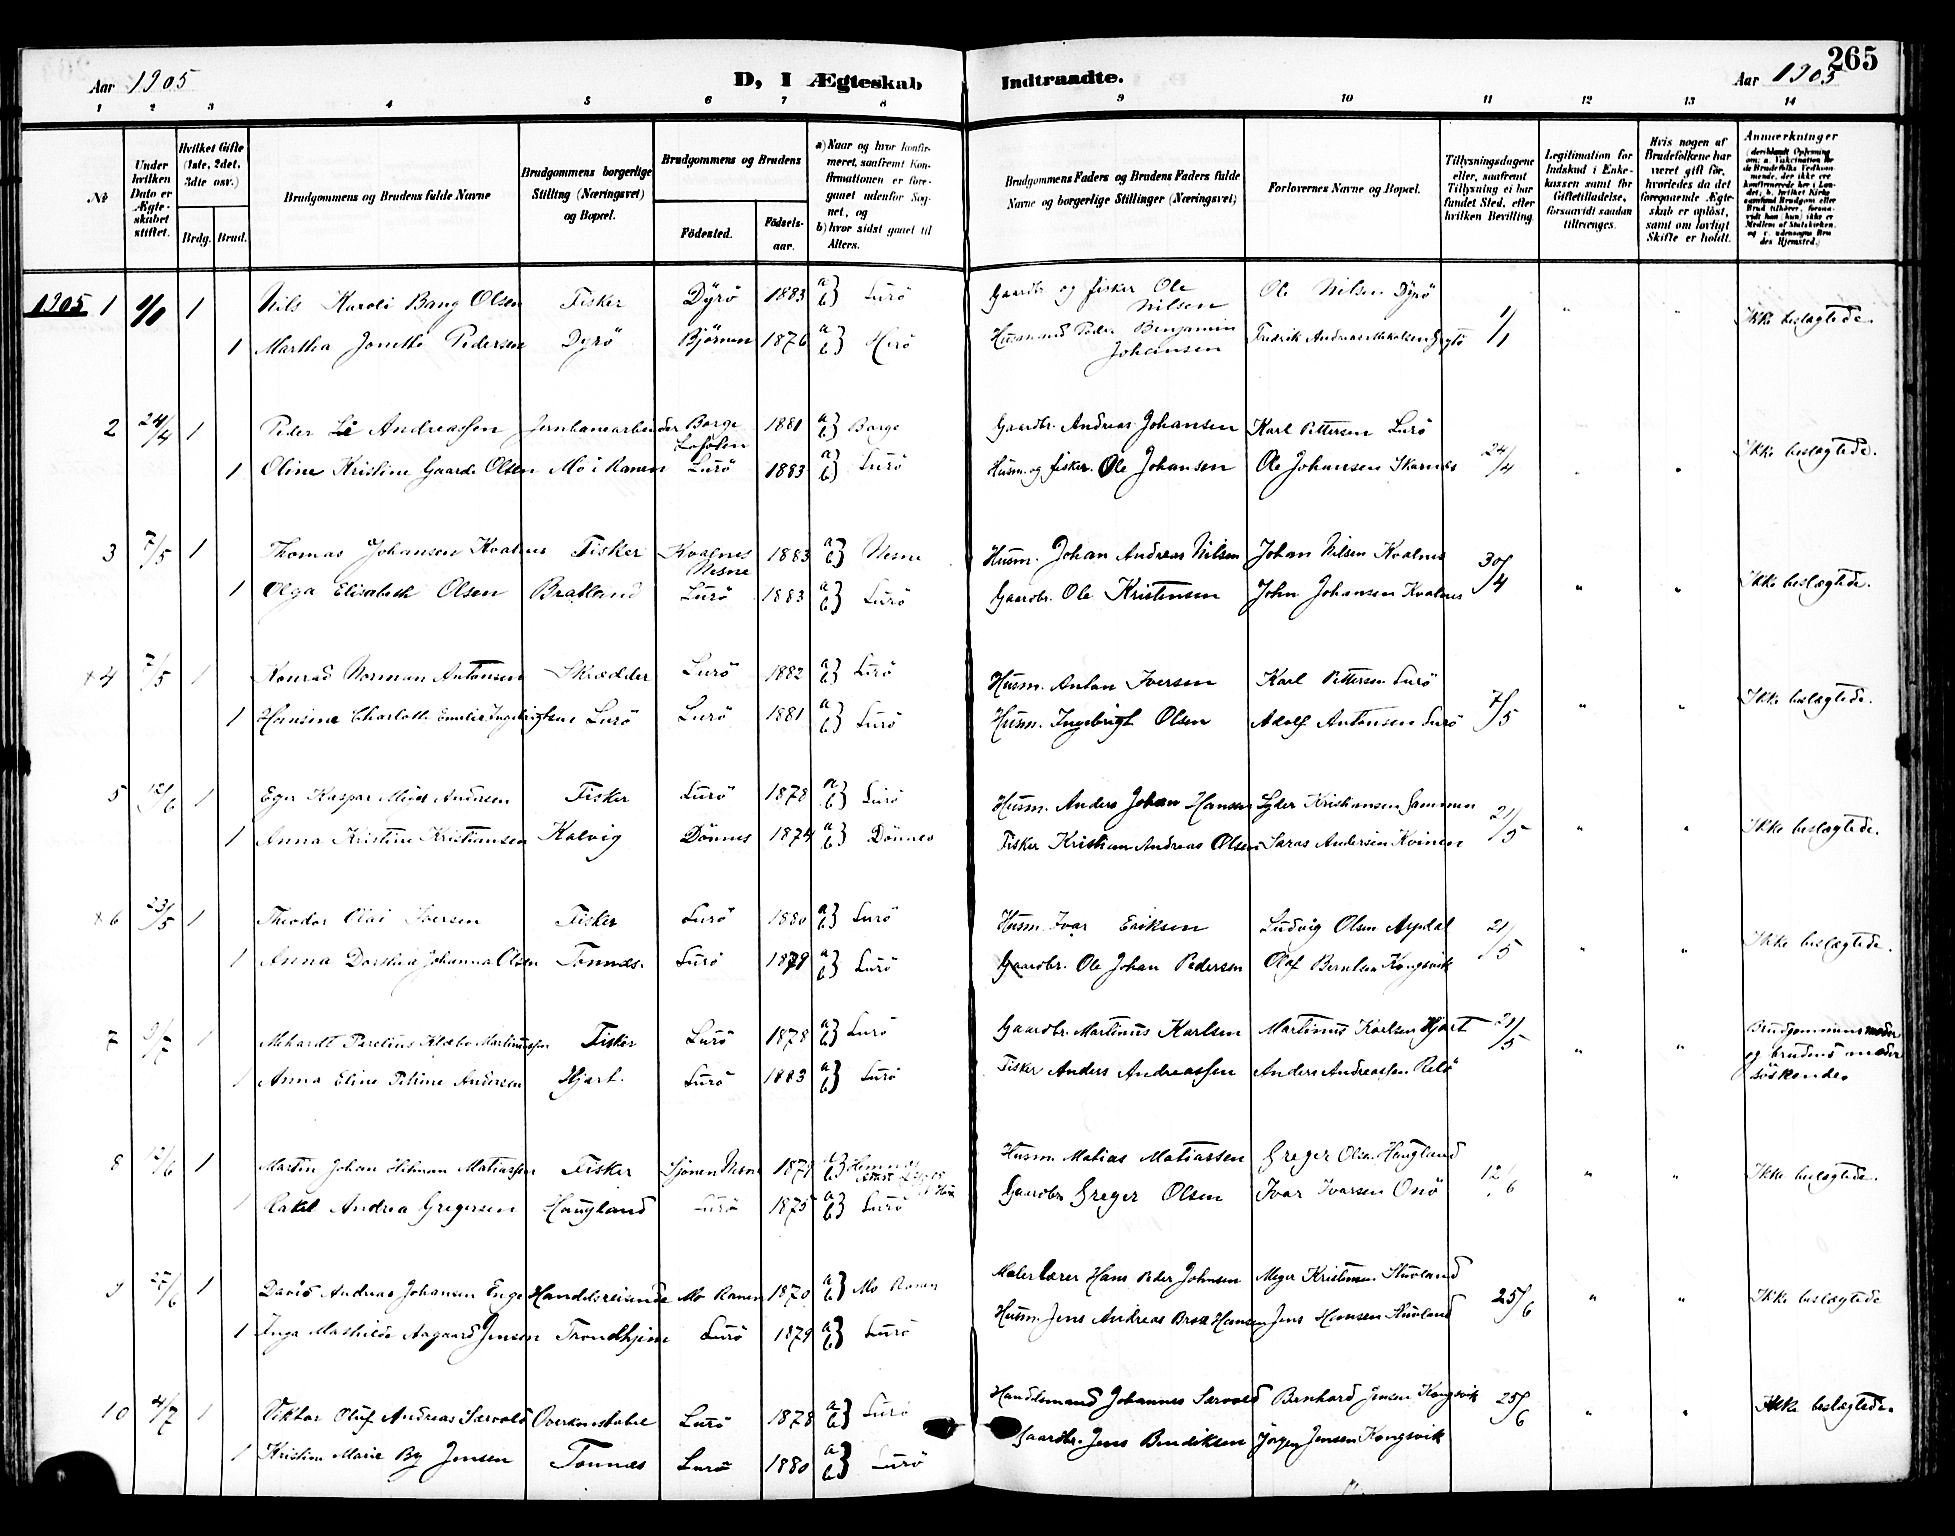 265
Aar 1905 D, I Ægteskab Indtraadte. Aar 1905
1 2 3 4 5 6 7 8 9 10 11 12 13 14
Nr.
Under hvilken Dato er Ægteskabet stiftet.
Hvilket Gifte (1ste, 2det, 3die osv.)
Brdg. Brud.
Brudgommens og Brudens fulde Navne
Brudgommens borgerlige Stilling (Næringsvei) og Bopæl.
Brudgommens og Brudens
Fødested. Fødselsaar.
a) Naar og hvor konfirmeret, saafremt Konfirmationen er foregaaet udenfor Sognet, og
b) hvor sidst gaaet til Alters.
Brudgommens Faders og Brudens Faders fulde Navne og borgerlige Stillinger (Næringsvei)
Forlovernes Navne og Bopæl.
Tillysningsdagene eller, saafremt Tillysning ei har fundet Sted, efter hvilken Bevilling.
Legitimation for Indskud i Enkekassen samt for Giftetilladelse, forsaavidt saadan tiltrænges.
Hvis nogen af Brudefolkene har været gift før, hvorledes da det foregaaende Ægteskab er opløst, samt om lovligt Skifte er holdt.
Anmærkninger
1905 1 1 Nils Karoli Bang Olsen Fisker Dyrö 1883 a b} Lurö Gaardbr og fisker Ole Nilsen Ole Nilsen Dyrö 1/1 " " Ikke beslægtede.
1 Martha Jonette Pedersen Dyrö Björnen 1876 a b} Herö Husmand Peder Benjamin Johansen Fredrik Andreas
2 24/4 1 Peder Andreassen Jernbanearbeider Borge Lofoten 1881 a b} Borge Gaardbr. Andreas Johansen Karl Pettersen Lurö 24/4 " " Ikke beslægtede.
1 Oline Kristine Gaarde Olsen Mo i Ranen Lurö 1883 a b} Lurö Husm. og fisker. Ole Johansen Ole Johansen Skarnes
3 7/5 1 Thomas Johansen Kvalnes Fisker Kvalnes Nesne 1883 a b} Nesne Husm. Johan Andreas Nilsen Johan Nilsen Kvalnes 30/4 " " Ikke beslægtede.
1 Olga Elisabeth Olsen Bratland Lurö 1883 a b} Lurö Gaardbr. Ole Kristensen John Johansen Kvalnes
x4 7/5 1 Konrad Norman Antonsen Skrædder Lurö 1882 a b} Lurö Husm. Anton Iversen Karl Pettersen Lurö 7/5 " " Ikke beslægtede.
1 Hansine Charlotte Emelie Ingebrigtsen Lurö Lurö 1881 a b} Lurö Husm. Ingebrigt Olsen Adolf Antonsen Lurö
5 12/6 1 Eger Kaspar Andersen Fisker Lurö 1878 a b} Lurö Husm. Anders Johan Hansen Lyder Kristiansen 21/5 " " Ikke beslægtede.
1 Anna Kristine Kristiansen Kalvig Dönnes 1874 a b} Dönnes Fisker Kristian Andreas Olsen Andersen Kvinen
x6 23/5 1 Theodor Olai Iversen Fisker Lurö 1880 a b} Lurö Husm. Ivar Eriksen Ludvig Olsen Aspdal 21/5 " " Ikke beslægtede.
1 Anna Dorthea Johanna Olsen Tonnæs. Lurö 1879 a b} Lurö Gaardbr. Ole Johan Pedersen Olaf Berntsen Kongsvik
7 9/7 1 Mekardt Parelius Klæbo Martinussen Fisker Lurö 1878 a b} Lurö Gaardbr. Martinus Karlsen Martinus Karlsen Hjart 21/5 " " Brudgommens moder
og brudens moder
söskende.
1 Anna Eline Petrine Andersen Hjart. Lurö 1883 a b} Lurö Fisker Anders Andreassen Anders Andreassen Relö
8 12/6 1 Martin Johan Hilman Matiassen Fisker Nesne a b} Husm. Matias Matiassen Greger Olsen Haugland 12/6 " " Ikke beslægtede.
1 Rakel Andrea Gregersen Haugland Lurö 1875 a b} Lurö Gaardbr Greger Olsen Ivar Ivarsen Onö
9 27/6 1 David Andreas Johansen Enge Handelsreisende Mo Ranen 1870 a b} Mo Ranen Hans Peder Johnsen Meyer Kristensen Stuvland 25/6 " " Ikke beslægtede
1 Inga Mathilde Aagaard Jensen Trondhjem Lurö 1879 a b} Lurö Husm. Jens Andreas Hansen Jens Hansen Stuvland
10 4/7 1 Viktor Oluf Andreas Særvold Overkonstabel Lurö 1878 a b} Lurö Handelsmand Johannes Særvold Bernhard Jensen Kongsvik 25/6 " " Ikke beslægtede.
1 Kristine Marie By Jensen Tonnæs Lurö 1880 a b} Lurö Gaardbr. Jens Bendiksen Jörgen Jensen Kongsvik